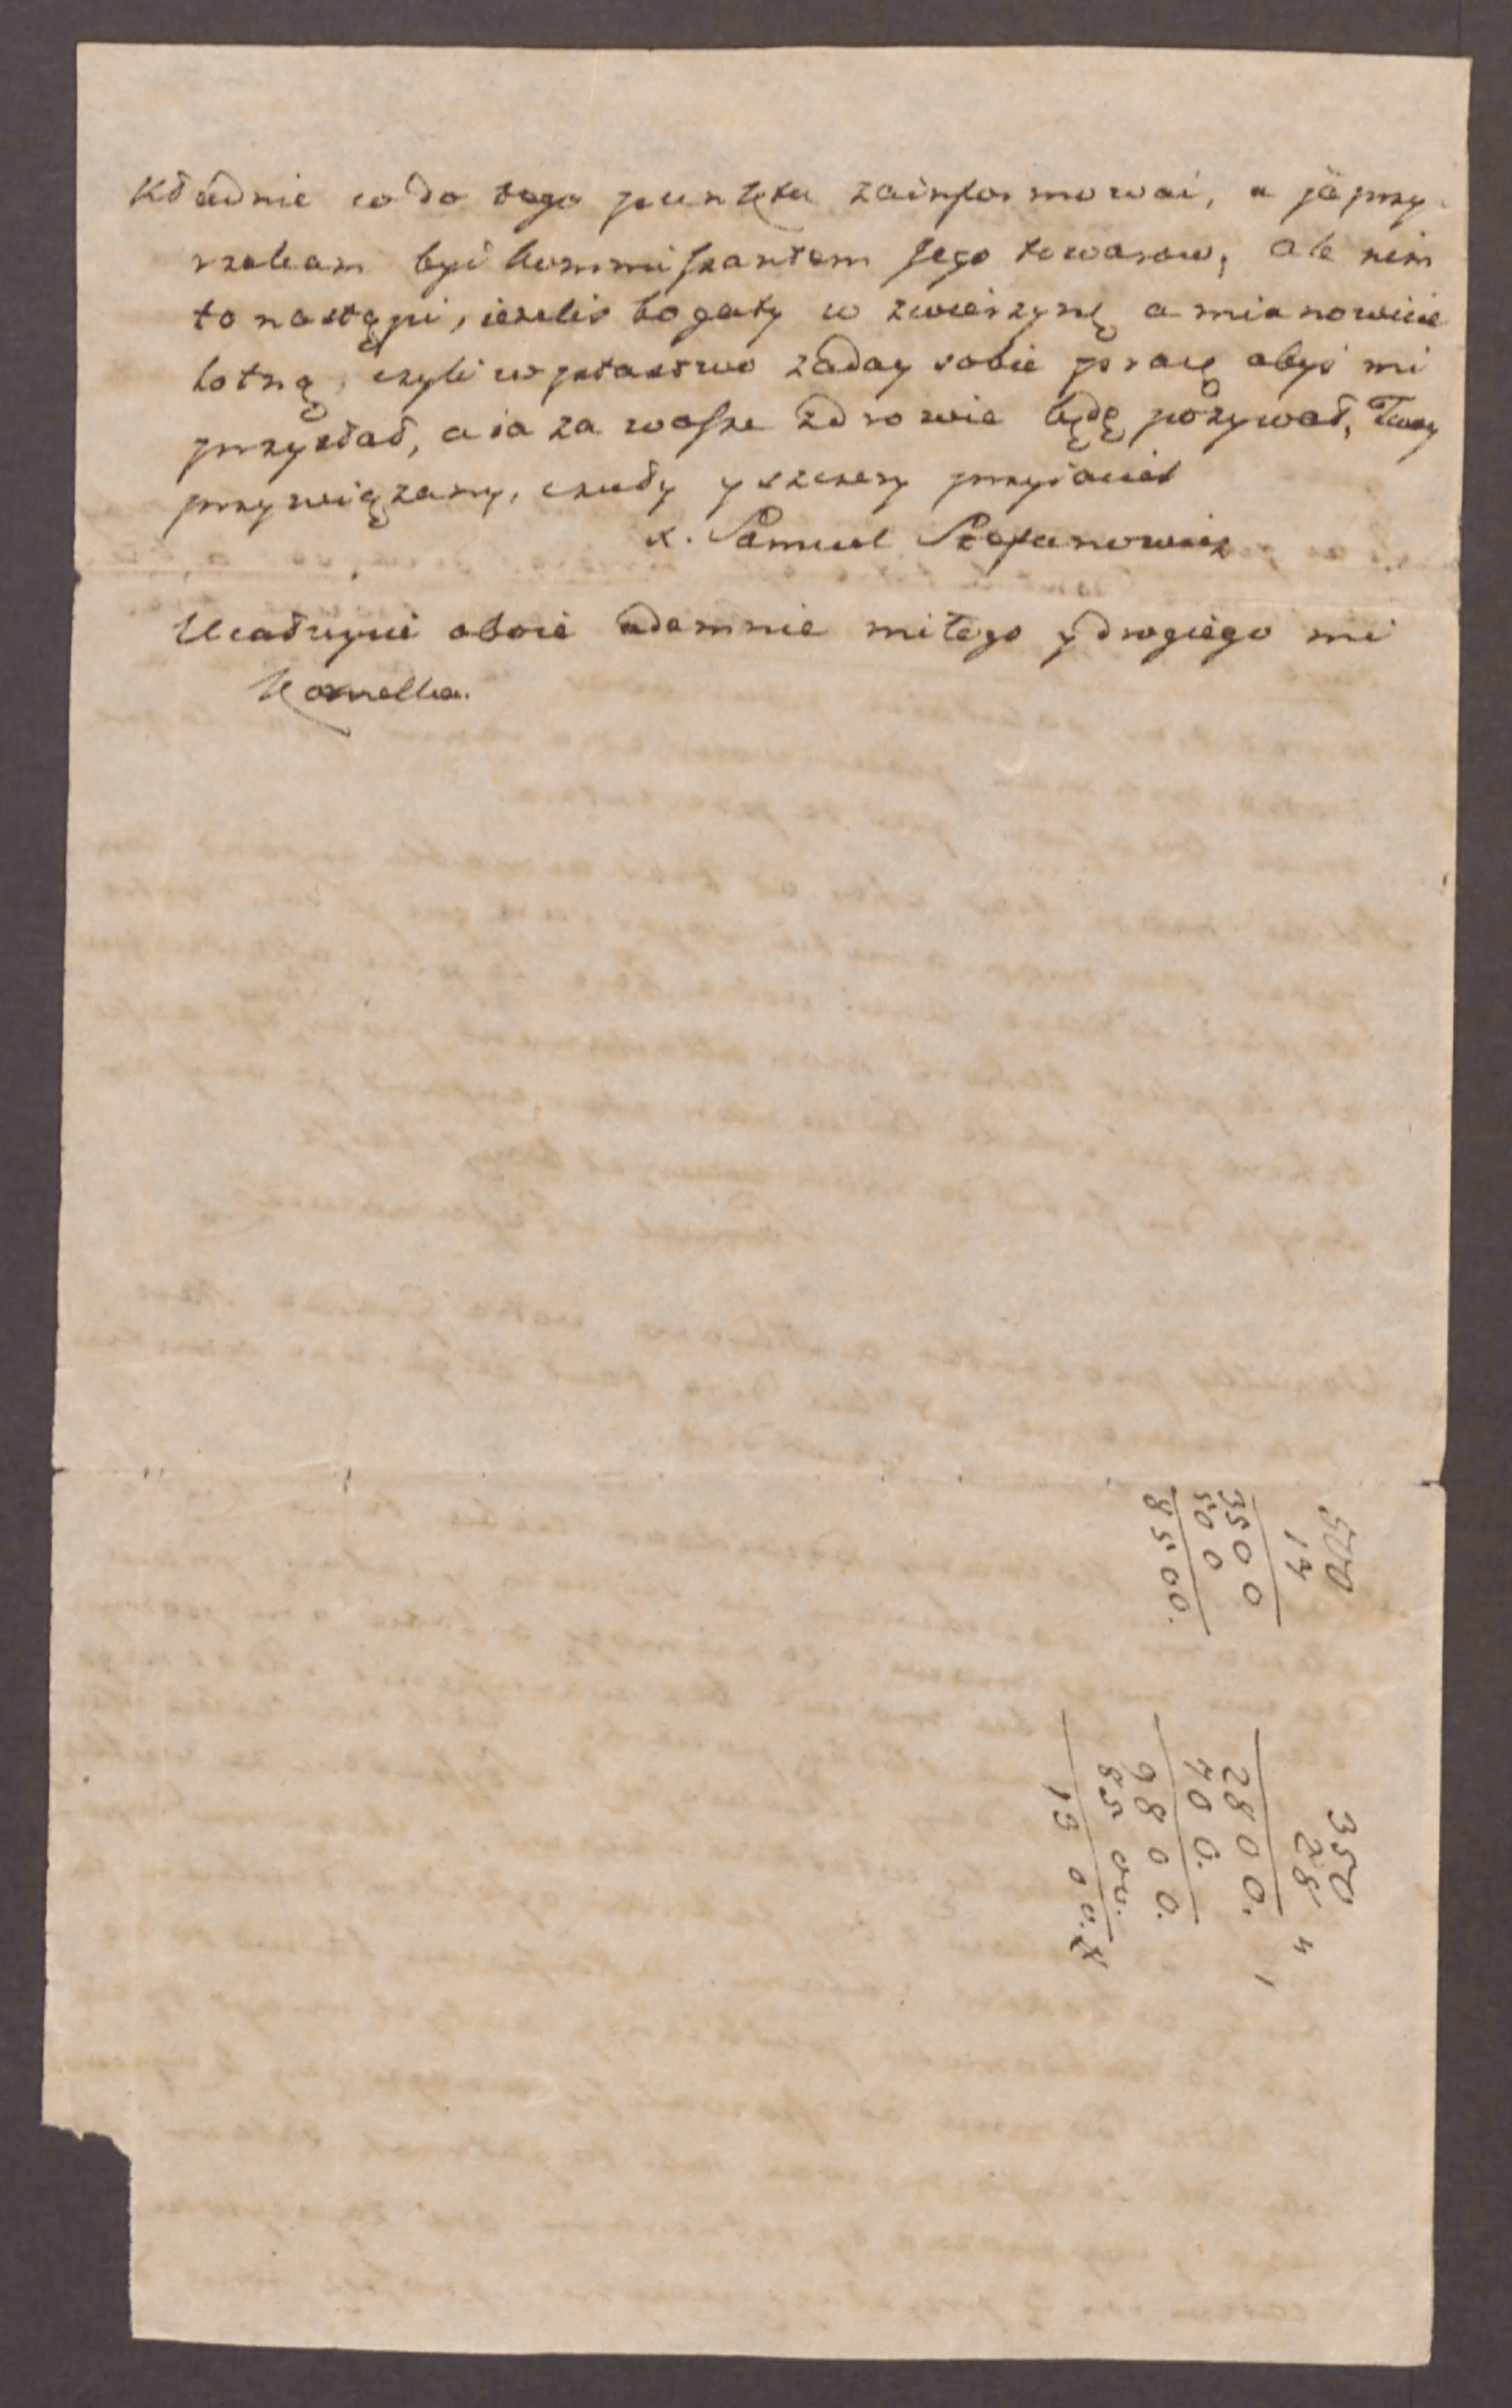 kładnie co do tego punktu zainformować, a ja przy-
rzekam być kommissantem Jego towarow, ale nim
to nastąpi, ieżeliś bogaty w zwierzynę a mianowicie
lotną, czyli w ptastwo zaday sobie pracę abyś mi
przysłał, a ia za wasze zdrowie będę pożywał, Twoy
przywiązany, czuły y szczery przyiaciel
x. Samuel Stefanowicz
Ucałuycie oboie odemnie miłego y drogiego mi
Kornelka.
500
17
3500
500
8500.
350
28
2800.
700.
9800.
8500.
1300.